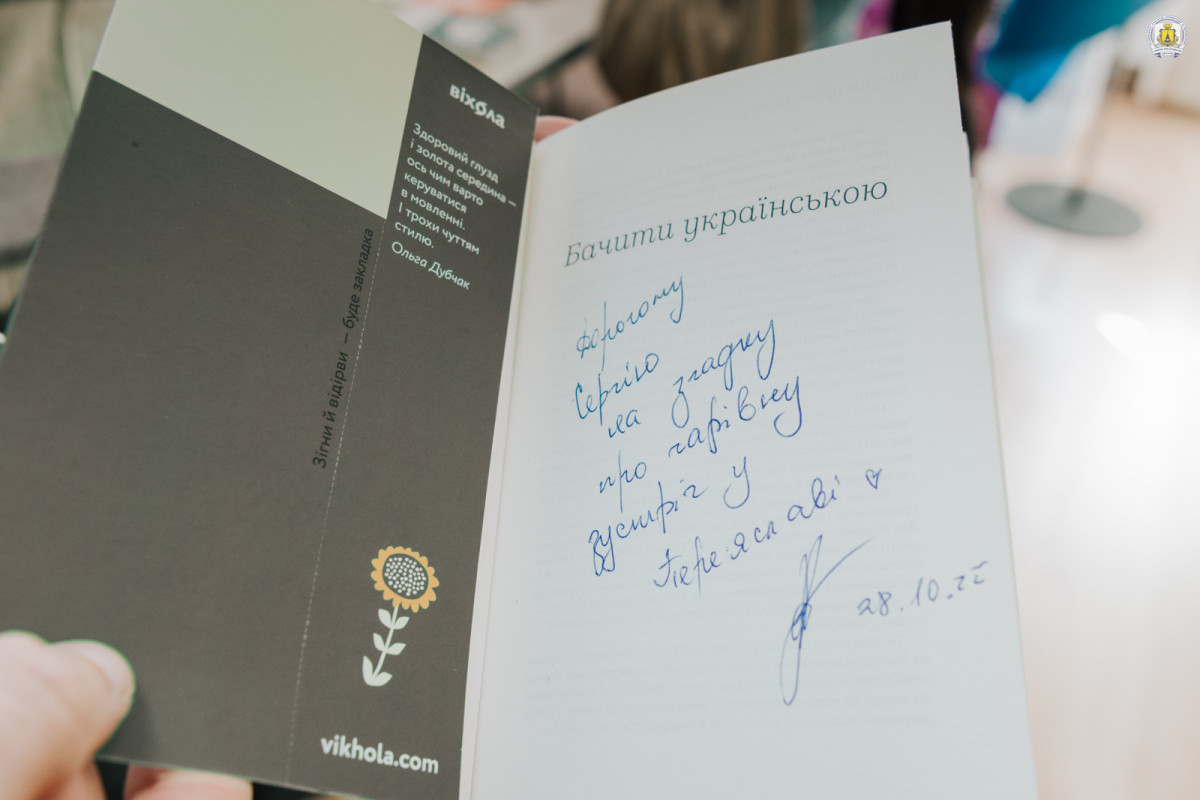 віхола
Здоровий глузд
і золота середина –
ось чим варто
керуватися
в мовленні.
І трохи чуттям
стилю.
Ольга Дубчак
Зігни й відірви – буде закладка
vikhola.com
Бачити українською
Дорогому
Сергію
на згадку
про чарівну
зустріч у
Переяславі
28.10.22